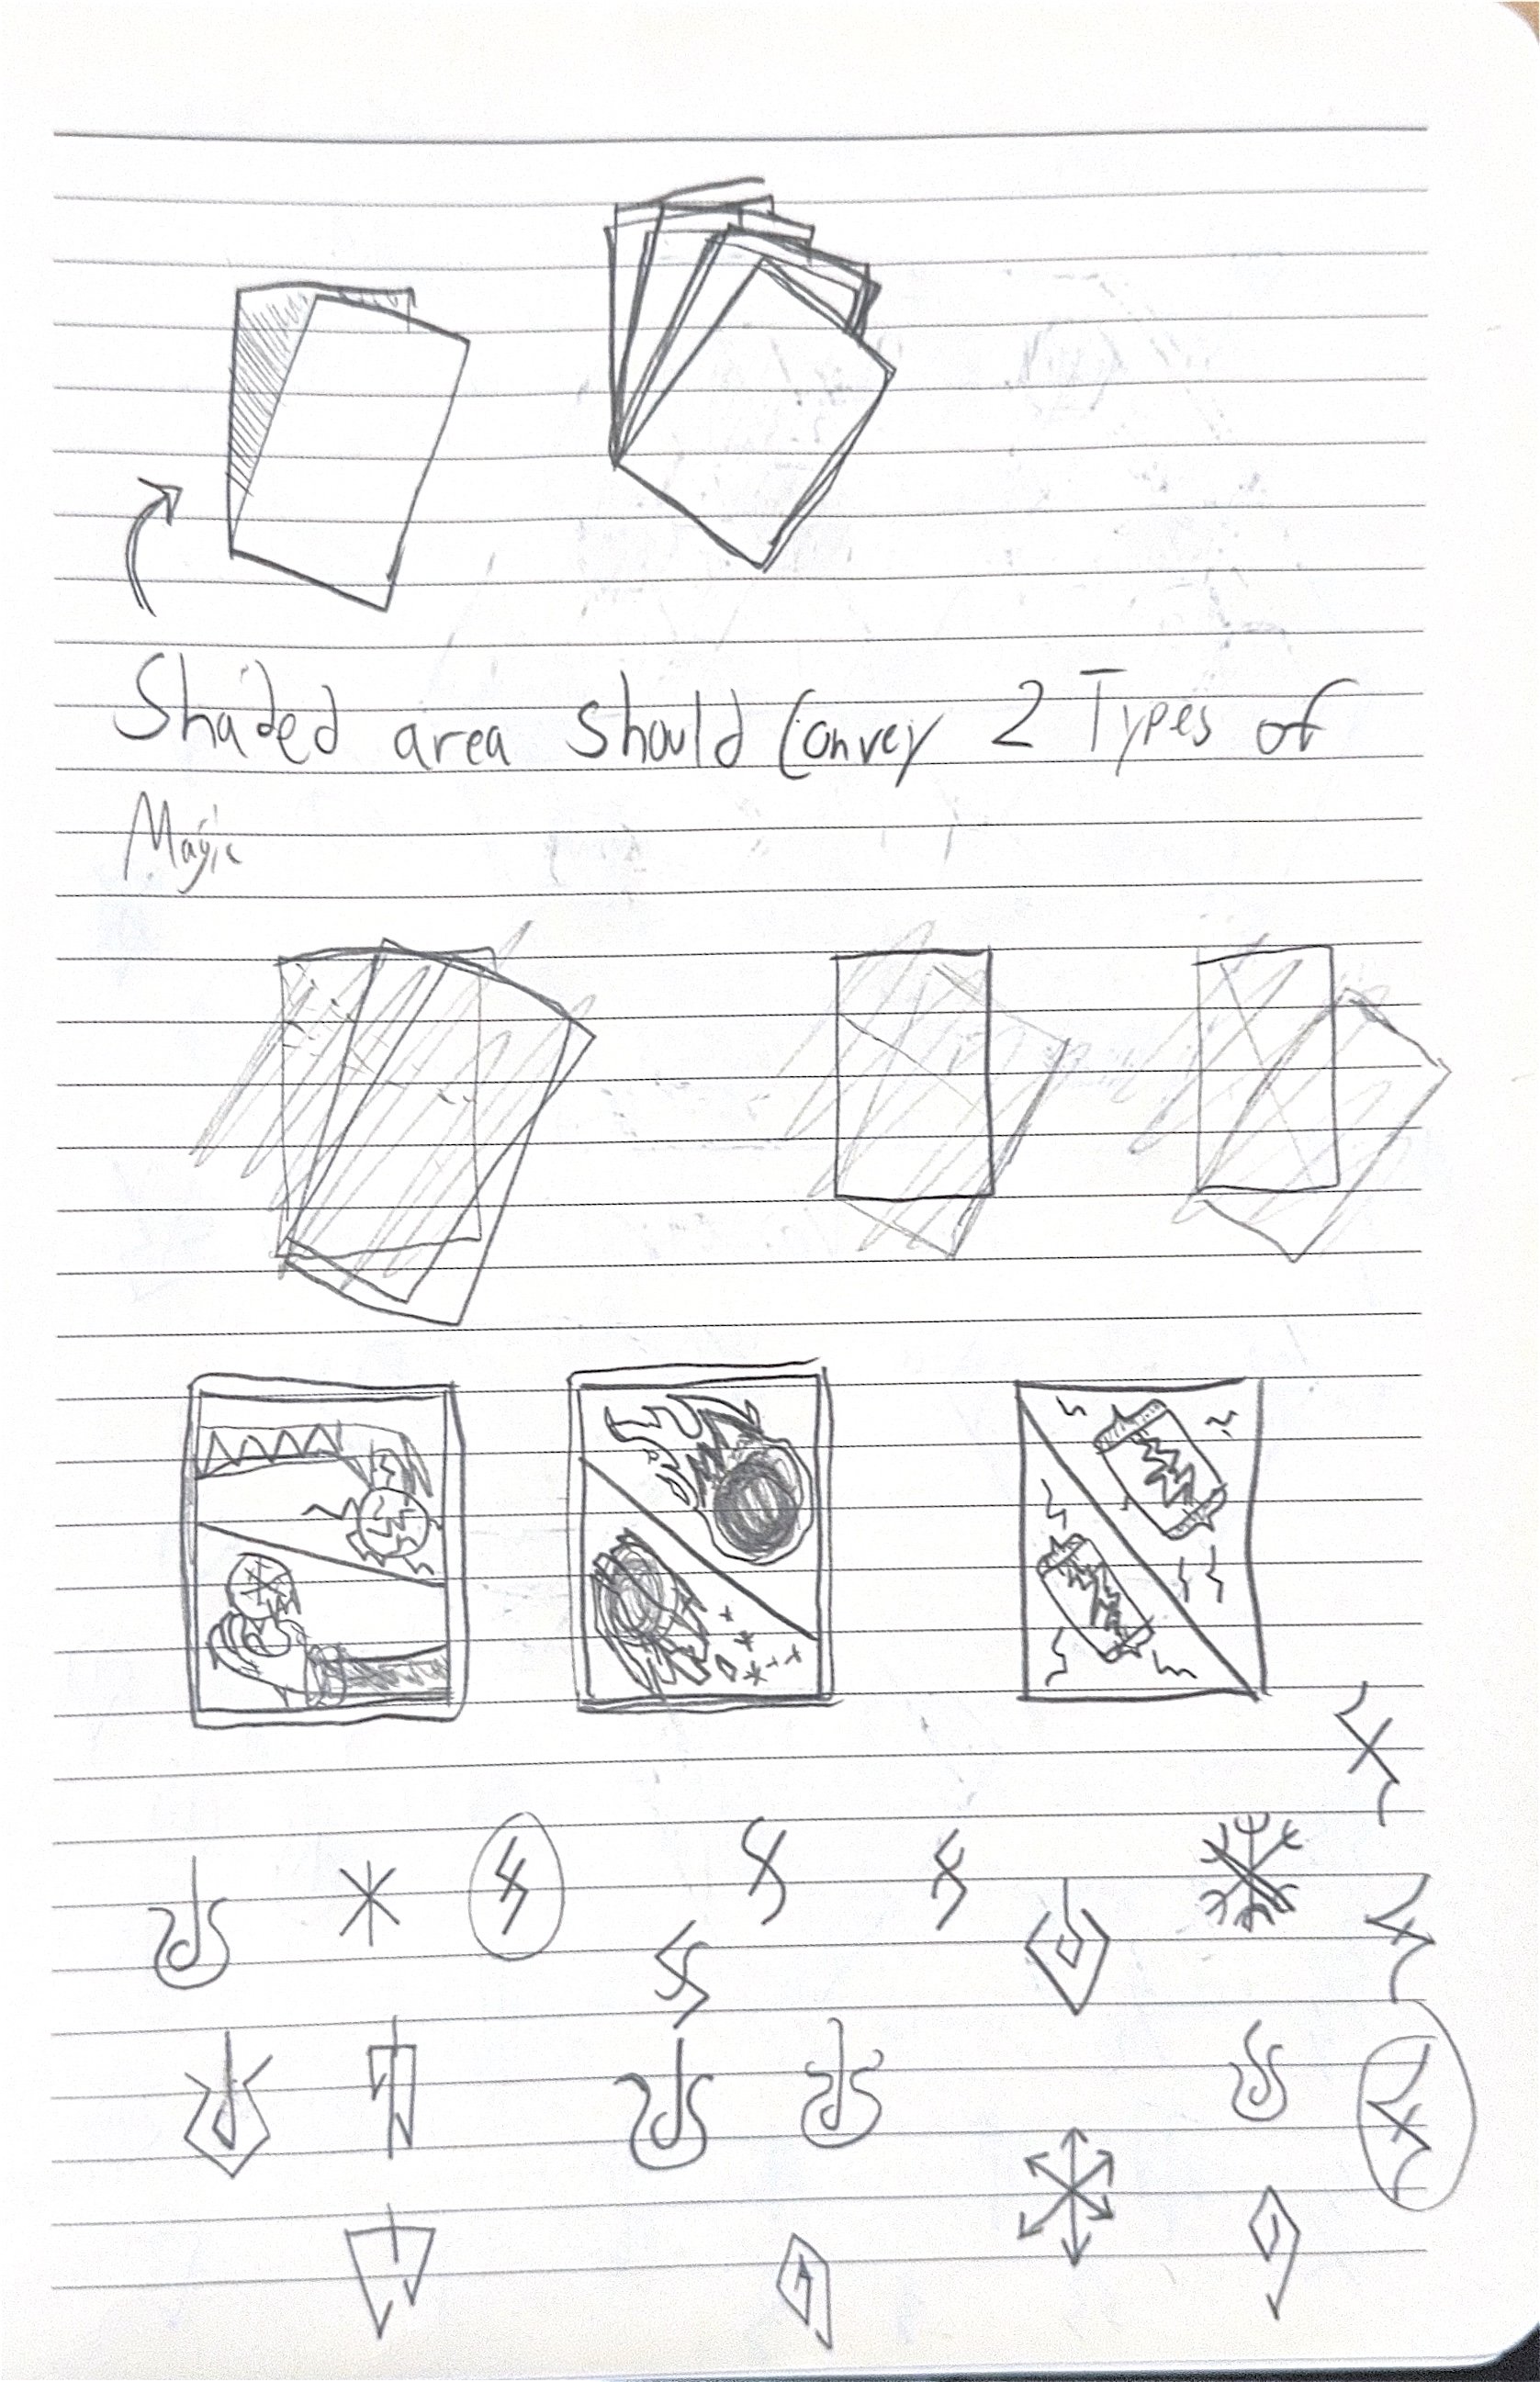 Shaded area should Convey 2 Types of
Magic